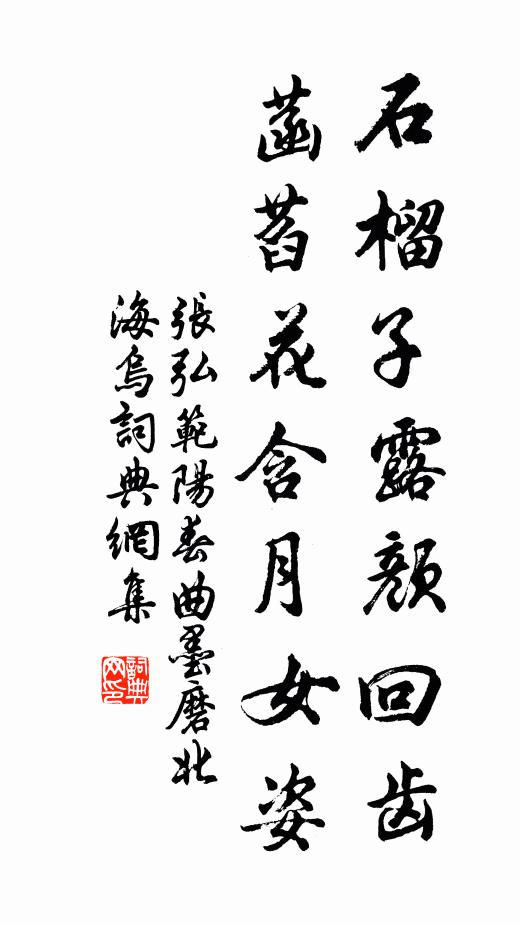 石榴子露顏回齿
菡萏花含月女姿
張弘範陽春曲墨磨北
海烏詞典網集
詞典网印